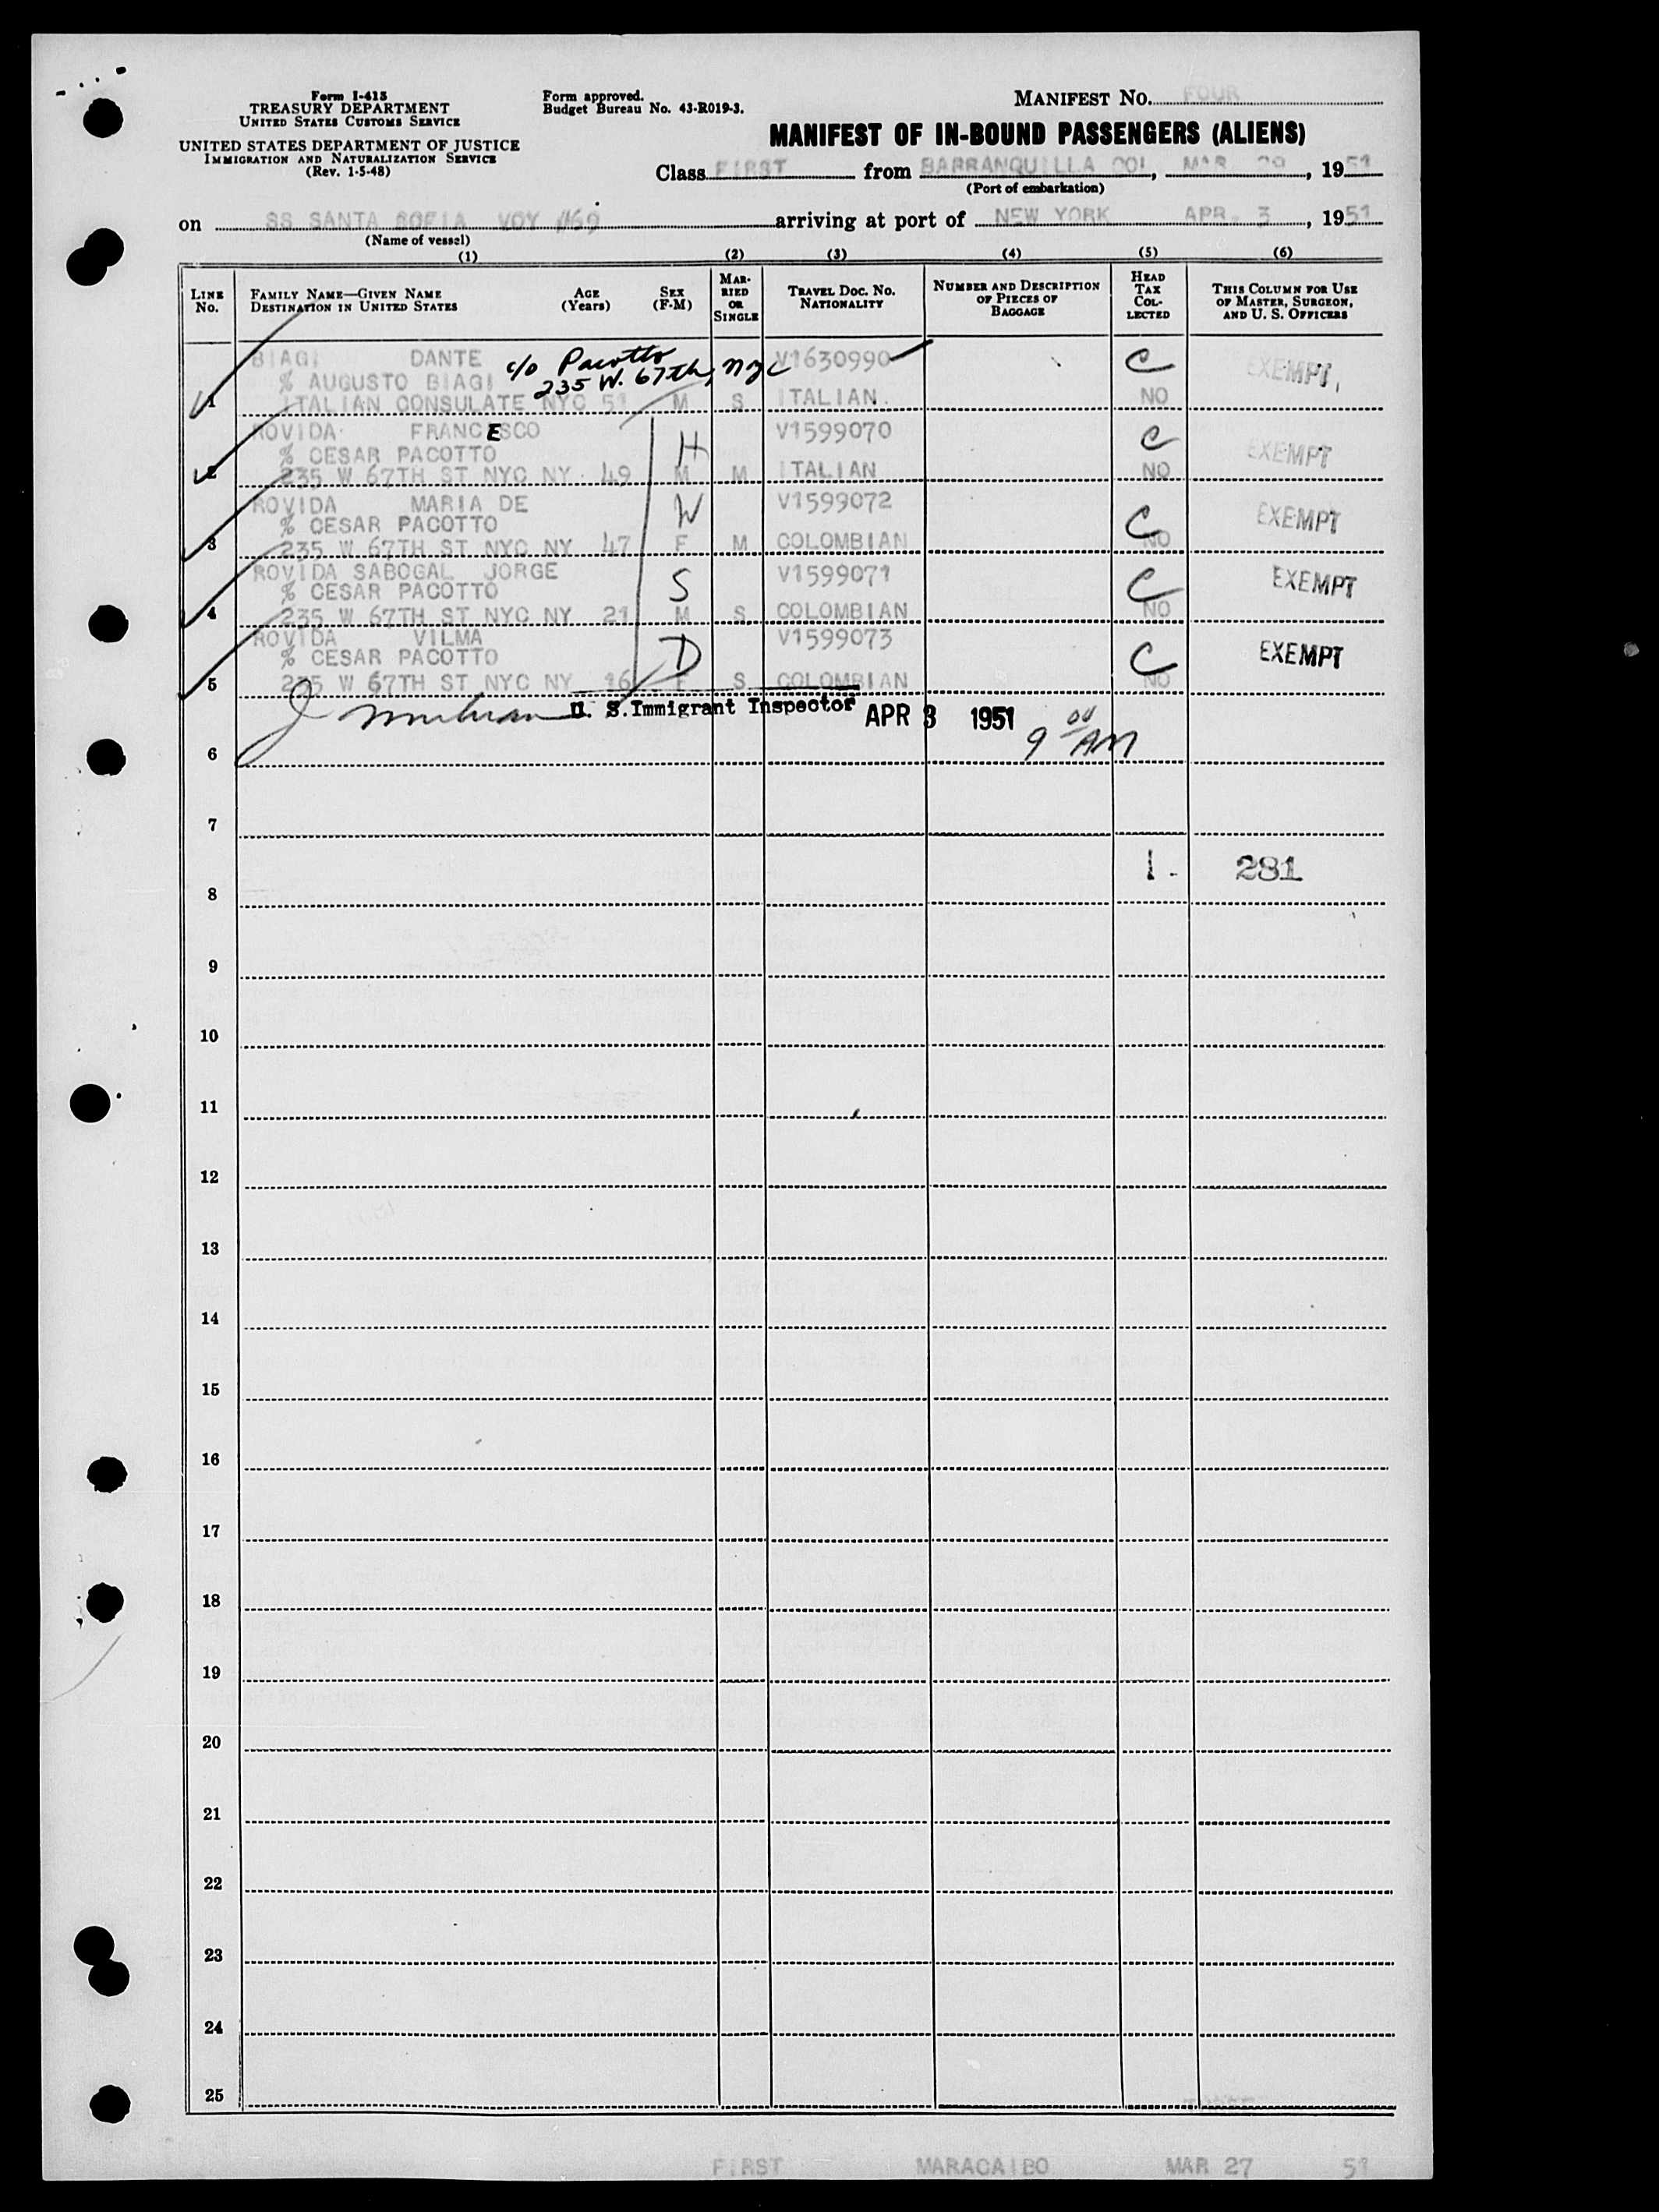 Form I-415
TREASURY DEPARTMENT
UNITED STATES CUSTOMS SERVICE
UNITED STATES DEPARTMENT OF JUSTICE
IMMIGRATION AND NATURALIZATION SERVICE
(Rev. 1-5-48)
Form approved.
Budget Bureau No. 43-R019-3.
MANIFEST NO. FOUR
MANIFEST OF IN-BOUND PASSENGERS (ALIENS)
Class FIRST from BARRANQUILLA COL, MAR 29, 1951
(Port of embarkation)
on SS SANTA SOFIA VOY #69 arriving at port of NEW YORK APR. 3, 1951
(Name of vessel)
(1) (2) (3) (4) (5) (6)
LINE No. FAMILY NAME—GIVEN NAME DESTINATION IN UNITED STATES AGE (Years) SEX (F-M) MARRIED OR SINGLE TRAVEL DOC. NO. NATIONALITY NUMBER AND DESCRIPTION OF PIECES OF BAGGAGE HEAD TAX COLLECTED THIS COLUMN FOR USE OF MASTER, SURGEON, AND U. S. OFFICERS
BIAGI DANTE c/o Pacotto V1630990 C EXEMPT
% AUGUSTO BIAGI 235 W. 67th, NYC
1 ITALIAN CONSULATE NYC 51 M S ITALIAN. NO
ROVIDA FRANCESCO V1599070 C EXEMPT
% CESAR PACOTTO H
2 235 W 67TH ST NYC NY 49 M M ITALIAN NO
ROVIDA MARIA DE V1599072 EXEMPT
% CESAR PACOTTO W C
3 235 W 67TH ST NYC NY 47 F M COLOMBIAN NO
ROVIDA SABOGAL JORGE V1599071 EXEMPT
% CESAR PACOTTO S C
4 235 W 67TH ST NYC NY 21 M S COLOMBIAN NO
ROVIDA VILMA V1599073 EXEMPT
% CESAR PACOTTO D C
5 235 W 67TH ST NYC NY 16 F S COLOMBIAN NO
U. S. Immigrant Inspector APR 3 1951
6 9 00 AM
7
1. 281
8
9
10
11
12
13
14
15
16
17
18
19
20
21
22
23
24
25
FIRST MARACAIBO MAR 27 51